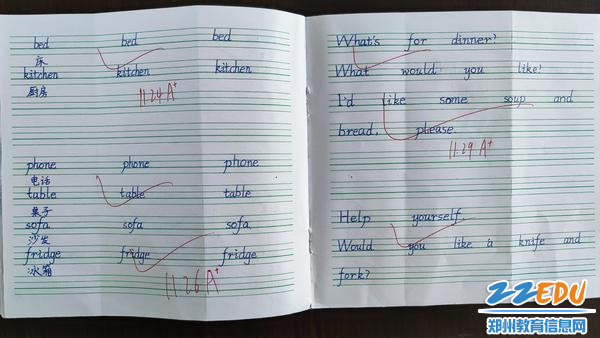 bed bed bed
床
kitchen kitchen kitchen
厨房
11.24 A+
phone phone phone
电话
table table table
桌子
sofa sofa sofa
沙发
fridge fridge fridge
冰箱
11.26 A+
What's for dinner?
What would you like?
I'd like some soup and
bread, please
11.29 A+
Help yourself.
Would you like a knife and
fork?
ZZEDU
郑州教育信息网